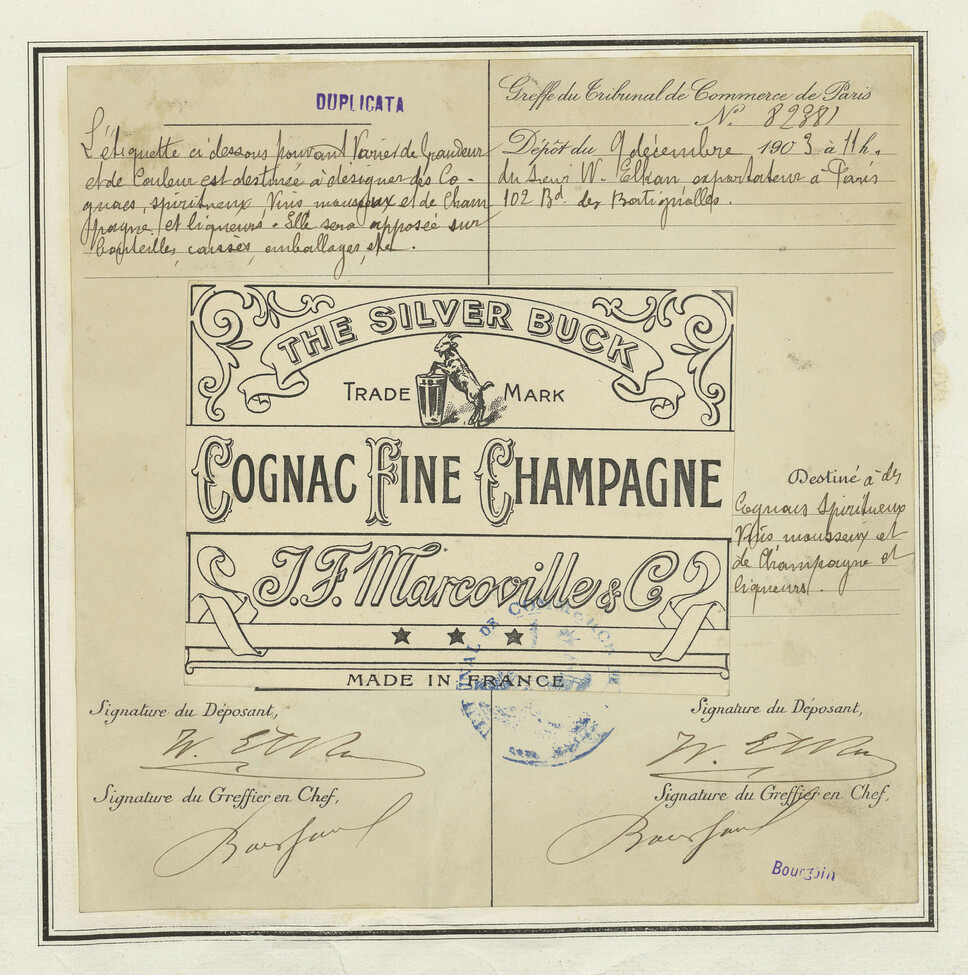 DUPLICATA
L'étiquette ci dessous pouvant Varier de Grandeur
et de Couleur est destinée à désigner des Co-
gnacs, spiritueux, Vins mousseux et de Cham
pagne, et liqueurs. Elle sera apposée sur
bouteilles, caisses, emballages, etc.
Greffe du Tribunal de Commerce de Paris
N° 82381
Dépôt du 9 décembre 1903 à 11h.
du sieur W. Elkan exportateur à Paris
102 Bd. des Batignolles.
THE SILVER BUCK
TRADE MARK
COGNAC FINE CHAMPAGNE
J.F. Marcoville & C°
MADE IN FRANCE
Destiné à des
Cognacs Spiritueux
Vins mousseux et
de Champagne et
liqueurs.
TRIBUNAL DE COMMERCE DE
Signature du Déposant,
W. Elkan
Signature du Greffier en Chef,
Signature du Déposant,
W. Elkan
Signature du Greffier en Chef,
Bourgoin